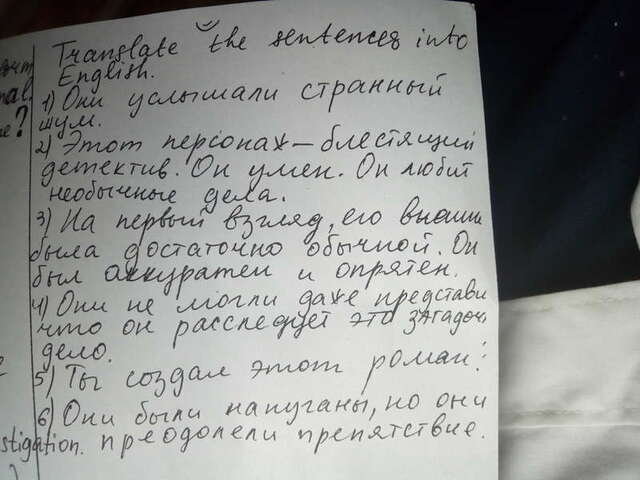 Translate the sentences into
English.
1) Они услышали странный
шум.
2) Этот персонаж – блестящий
детектив. Он умен. Он любит
необычные дела.
3) На первый взгляд, его внешн
была достаточно обычной. Он
был аккуратен и опрятен.
4) Они не могли даже представи
что он расследует это загадоч
дело.
5) Ты создал этот роман?
6) Они были напуганы, но они
stigation. преодолели препятствие.